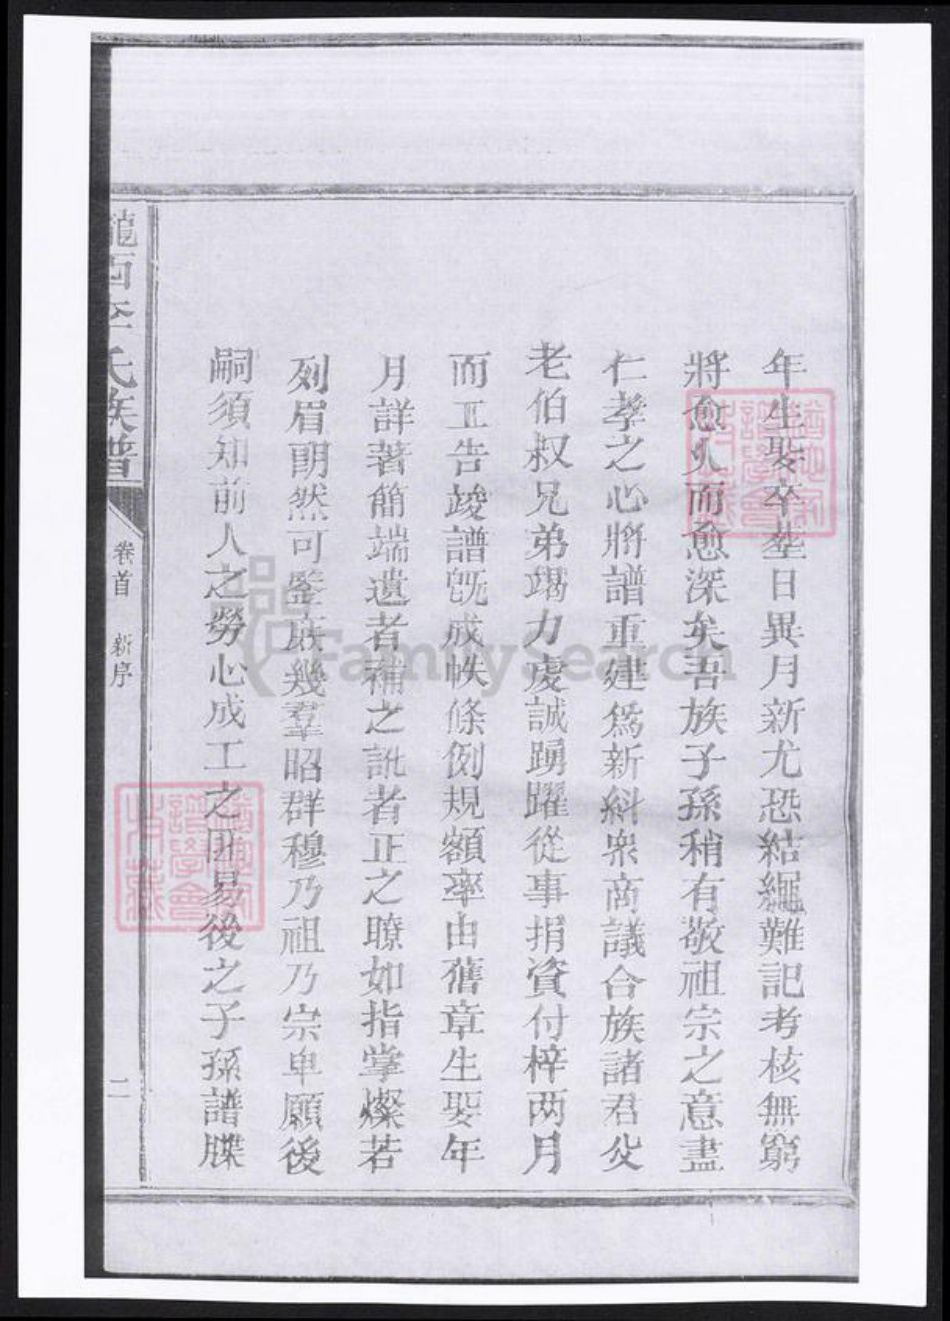 年生娶卒塟日異月新尤恐結繩難記考核無窮
將愈久而愈深矣吾族子孫稍有敬祖宗之意盡
仁孝之心將譜重建爲新糾衆商議合族諸君父
老伯叔兄弟竭力虔誠踴躍從事捐資付梓两月
而工告竣譜旣成帙條例規額率由舊章生娶年
月詳著簡端遺者補之訛者正之瞭如指掌燦若
列眉朗然可鑒庶幾羣昭群穆乃祖乃宗卑願後
嗣須知前人之勞心成工之匪易後之子孫譜牒
隴西李氏族譜 卷首 新序 二
FamilySearch